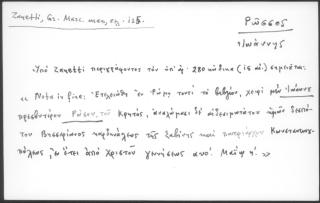 Zanetti, Gr. Marc. man, σελ. 125.
Ῥῶσσος
Ἰωάννης
Ὑπὸ Zanetti περιγράφοντος τὸν ὑπ' ἀρ. 280 κώδικα (15 αἰ.) σημειοῦται:
« Nota in fine: Ἐτελειώθη ἐν Ῥώμῃ τουτὶ τὸ βιβλίον, χειρὶ μὲν Ἰωάννου
πρεσβυτέρου Ῥώσου, τοῦ Κρητός, ἀναλώμασι δὲ αἰδεσιμωτάτου ἡμῶν δεσπό-
του Βησσαρίωνος καρδινάλεως τῆς Σαβίνης καὶ πατριάρχου Κωνσταντινου-
πόλεως, ἐν ἔτει ἀπὸ Χριστοῦ γεννήσεως αυο'. Μαΐῳ η'. »